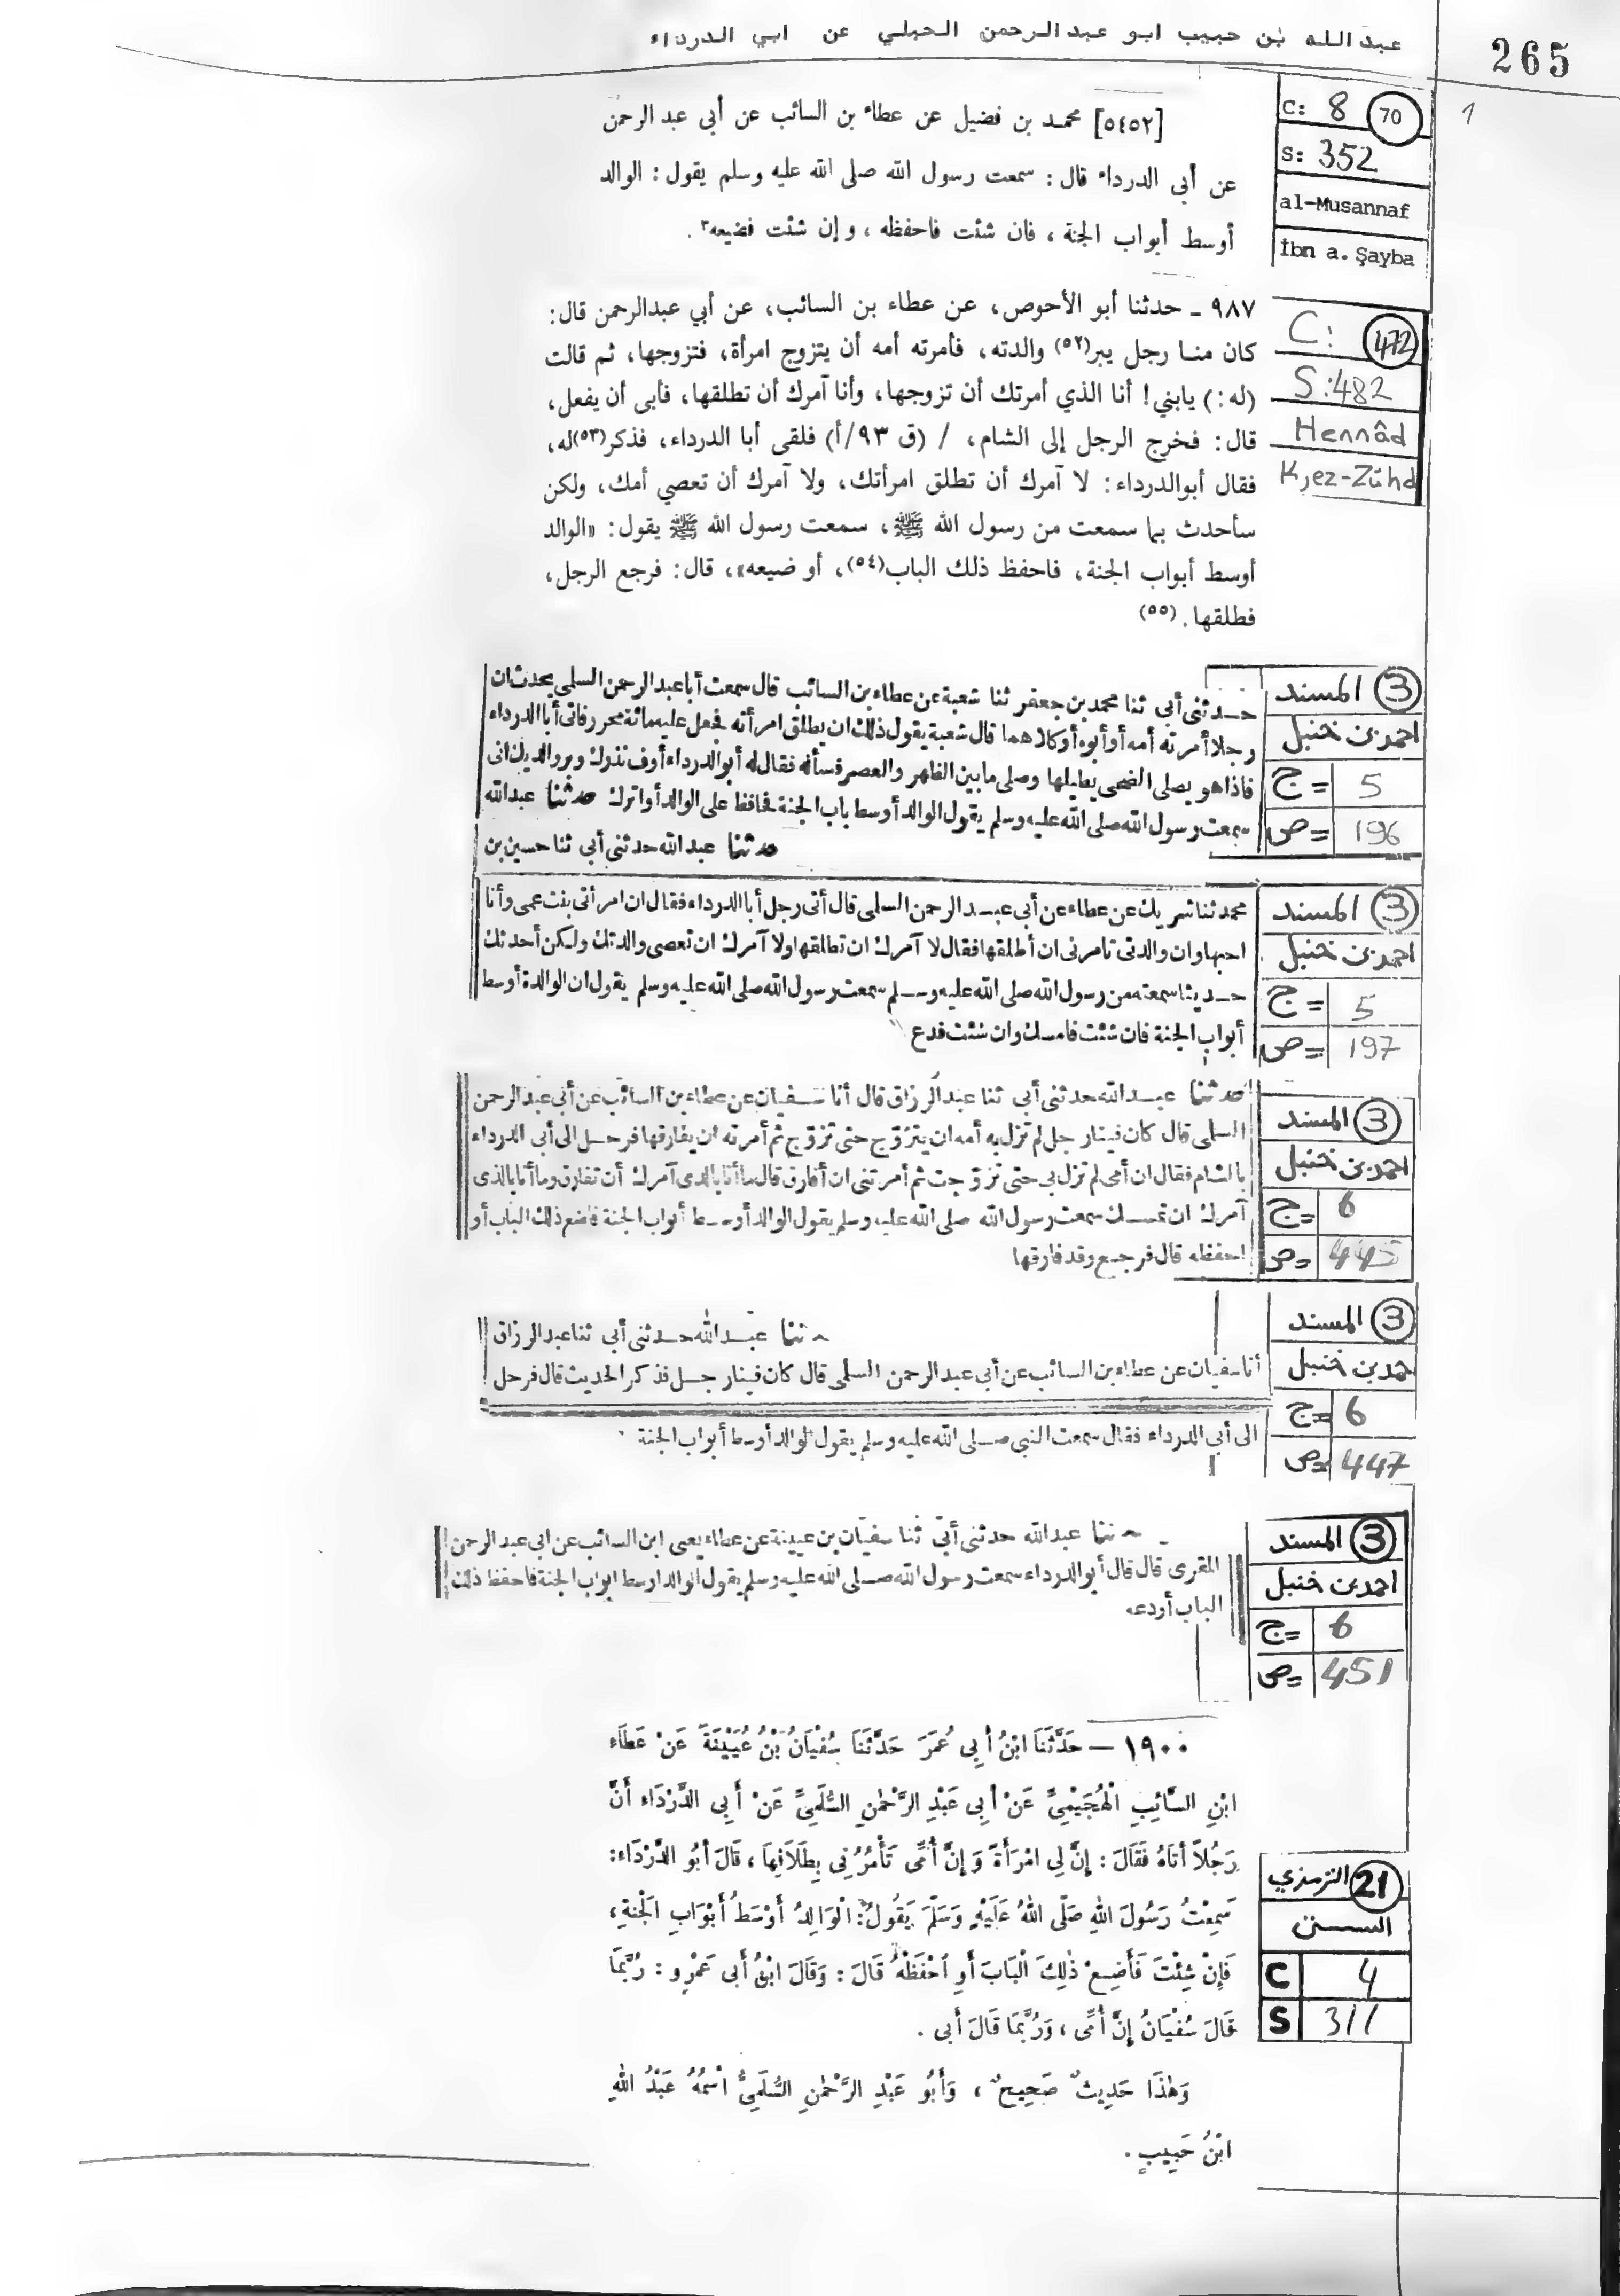 عبدالله بن حبيب ابو عبدالرحمن الحبلي عن ابي الدرداء
265
C: 8 70
1
S: 352
al-Musannaf
İbn a. Şayba
[٥٤٥٢] محمد بن فضيل عن عطاء بن السائب عن أبي عبد الرحمن
عن أبي الدرداء قال : سمعت رسول الله صلى الله عليه وسلم يقول : الوالد
أوسط أبواب الجنة ، فان شئت فاحفظه ، وإن شئت فضيعه٣ .
C: 472
S: 482
Hennâd
K, ez-Zühd
٩٨٧ ـ حدثنا أبو الأحوص، عن عطاء بن السائب، عن أبي عبدالرحمن قال:
كان منا رجل يبر(٥٢) والدته، فأمرته أمه أن يتزوج امرأة، فتزوجها، ثم قالت
(له:) يابني! أنا الذي أمرتك أن تزوجها، وأنا آمرك أن تطلقها، فأبى أن يفعل،
قال: فخرج الرجل إلى الشام، / (ق ٩٣/أ) فلقى أبا الدرداء، فذكر(٥٣)له،
فقال أبوالدرداء: لا آمرك أن تطلق امرأتك، ولا آمرك أن تعصي أمك، ولكن
سأحدث بما سمعت من رسول الله ﷺ، سمعت رسول الله ﷺ يقول: «الوالد
أوسط أبواب الجنة، فاحفظ ذلك الباب(٥٤)، أو ضيعه»، قال: فرجع الرجل،
فطلقها.(٥٥)
3 المسند
احمد بن حنبل
ج= 5
ص= 196
حدثنى أبى ثنا محمد بن جعفر ثنا شعبة عن عطاء بن السائب قال سمعت أبا عبد الرحمن السلمى يحدث ان
رجلا أمرته أمه أو أبوه أو كلاهما قال شعبة يقول ذلك ان يطلق امرأته فجعل عليه مائة محرر فاتى أبا الدرداء
فاذا هو يصلى الضحى يطيلها وصلى ما بين الظهر والعصر فسأله فقال له أبو الدرداء أوف نذرك وبر والديك انى
سمعت رسول الله صلى الله عليه وسلم يقول الوالد أوسط باب الجنة فحافظ على الوالد أو اترك حدثنا عبد الله
حدثنا عبد الله حدثنى أبى ثنا حسين بن
3 المسند
احمد بن حنبل
ج= 5
ص= 197
محمد ثنا شريك عن عطاء عن أبى عبد الرحمن السلمى قال أتى رجل أبا الدرداء فقال ان امرأتى بنت عمى وأنا
احبها وان والدتى تامرنى ان أطلقها فقال لا آمرك ان تطلقها ولا آمرك ان تعصى والدتك ولكن أحدثك
حديثا سمعته من رسول الله صلى الله عليه وسلم سمعت رسول الله صلى الله عليه وسلم يقول ان الوالدة أوسط
أبواب الجنة فان شئت فامسك وان شئت فدع
3 المسند
احمد بن حنبل
ج= 6
ص= 445
حدثنا عبد الله حدثنى أبى ثنا عبد الرزاق قال أنا سفيان عن عطاء بن السائب عن أبى عبد الرحمن
السلمى قال كان فينا رجل لم تزل به أمه ان يتزوج حتى تزوج ثم أمرته ان يفارقها فرحل الى أبى الدرداء
بالشام فقال ان أمى لم تزل بى حتى تزوجت ثم أمرتنى ان أفارق قال ما أنا بالذى آمرك أن تفارق وما أنا بالذى
آمرك ان تمسك سمعت رسول الله صلى الله عليه وسلم يقول الوالد أوسط أبواب الجنة فاضع ذلك الباب أو
احفظه قال فرجع وقد فارقها
3 المسند
حمد بن حنبل
ج= 6
ص= 447
حدثنا عبد الله حدثنى أبى ثنا عبد الرزاق
أنا سفيان عن عطاء بن السائب عن أبى عبد الرحمن السلمى قال كان فينا رجل فذكر الحديث قال فرحل
الى أبى الدرداء فقال سمعت النبى صلى الله عليه وسلم يقول الوالد أوسط أبواب الجنة
3 المسند
احمد بن حنبل
ج= 6
ص= 451
حدثنا عبد الله حدثنى أبى ثنا سفيان بن عيينة عن عطاء يعنى ابن السائب عن ابى عبد الرحمن
المقرى قال قال أبو الدرداء سمعت رسول الله صلى الله عليه وسلم يقول الوالد اوسط ابواب الجنة فاحفظ ذلك
الباب أو دعه
١٩٠٠ — حَدَّثَنَا ابْنُ أَبِي عُمَرَ حَدَّثَنَا سُفْيَانُ بْنُ عُيَيْنَةَ عَنْ عَطَاءِ
ابْنِ السَّائِبِ الْهُجَيْمِيِّ عَنْ أَبِي عَبْدِ الرَّحْمٰنِ السُّلَمِيِّ عَنْ أَبِي الدَّرْدَاءِ أَنَّ
رَجُلاً أَتَاهُ فَقَالَ : إِنَّ لِي امْرَأَةً وَإِنَّ أُمِّي تَأْمُرُنِي بِطَلَاقِهَا ، قَالَ أَبُو الدَّرْدَاءِ:
سَمِعْتُ رَسُولَ اللهِ صَلَّى اللهُ عَلَيْهِ وَسَلَّمَ يَقُولُ: الْوَالِدُ أَوْسَطُ أَبْوَابِ الْجَنَّةِ،
فَإِنْ شِئْتَ فَأَضِعْ ذٰلِكَ الْبَابَ أَوِ احْفَظْهُ قَالَ : وَقَالَ ابْنُ أَبِي عَمْرٍو : رُبَّمَا
قَالَ سُفْيَانُ إِنَّ أُمِّي ، وَرُبَّمَا قَالَ أَبِي .
وَهٰذَا حَدِيثٌ صَحِيحٌ ، وَأَبُو عَبْدِ الرَّحْمٰنِ السُّلَمِيُّ اسْمُهُ عَبْدُ اللهِ
ابْنُ حَبِيبٍ .
21 الترمذي
السنن
C 4
S 311